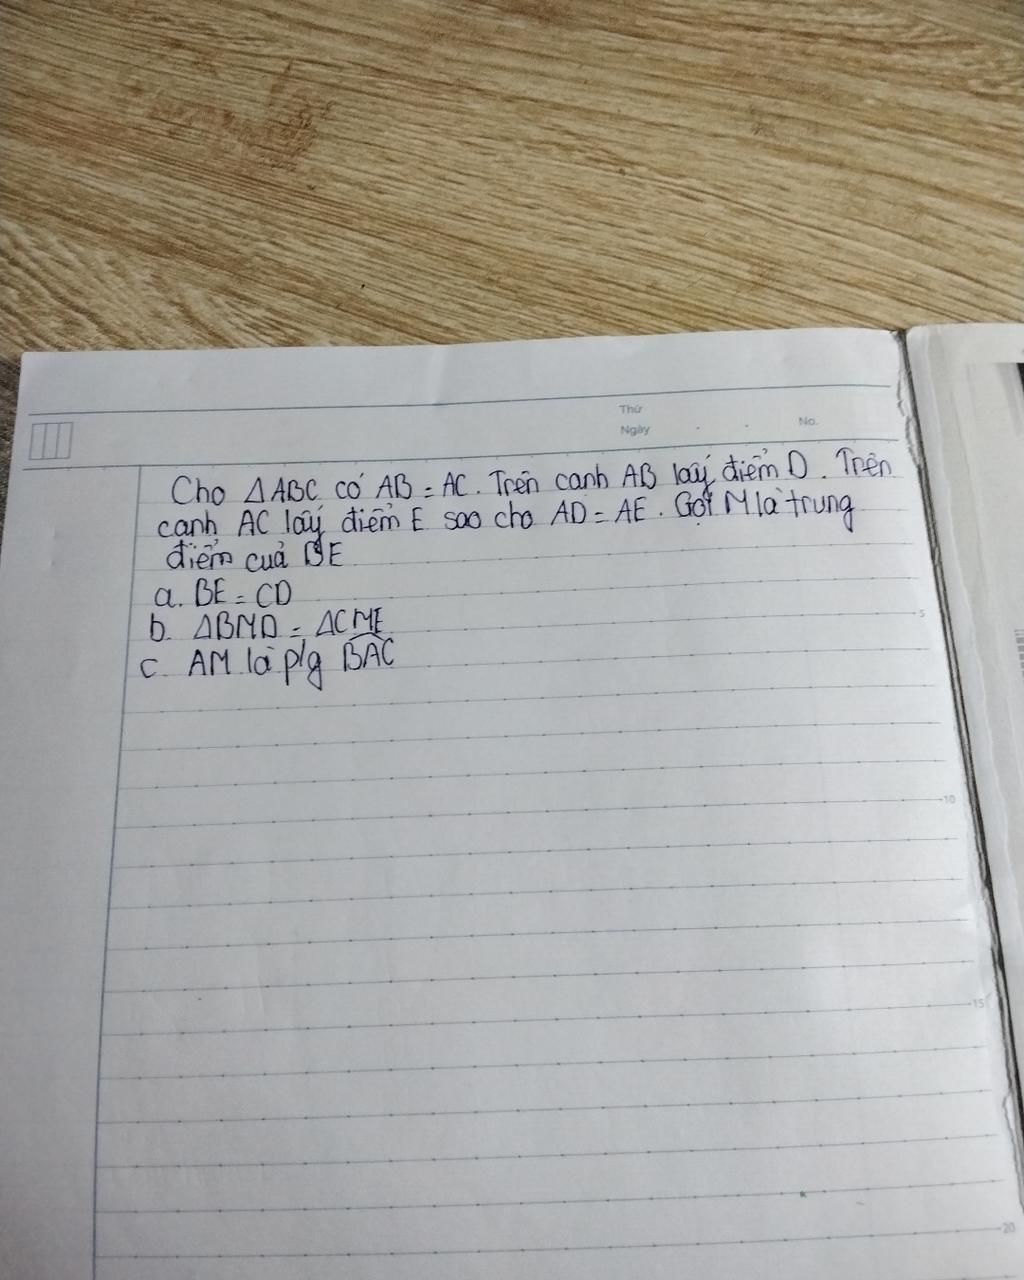 Thứ
Ngày
No.
Cho ΔABC có AB = AC. Trên cạnh AB lấy điểm D. Trên
cạnh AC lấy điểm E sao cho AD = AE. Gọi M là trung
điểm của BE
a. BE = CD
b. ΔBMD = ΔCME
c. AM là p/g BAC
5
10
15
20